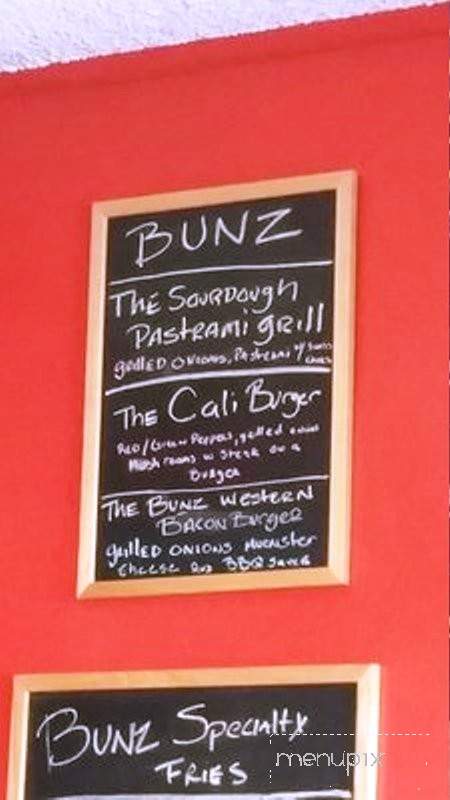 BUNZ
THE SOURDOUGH
PASTRAMI GRILL
GRILLED ONIONS, PASTRAMI W/ SWISS
CHEESE
THE Cali Burger
RED/GREEN Peppers, grilled onions
MUSHROOMS w Steak on a
Burger
THE BUNZ WESTERN
BACON Burger
grilled ONIONS MUENSTER
CHEESE BBQ SAUCE
BUNZ Specialty
FRIES
menupix